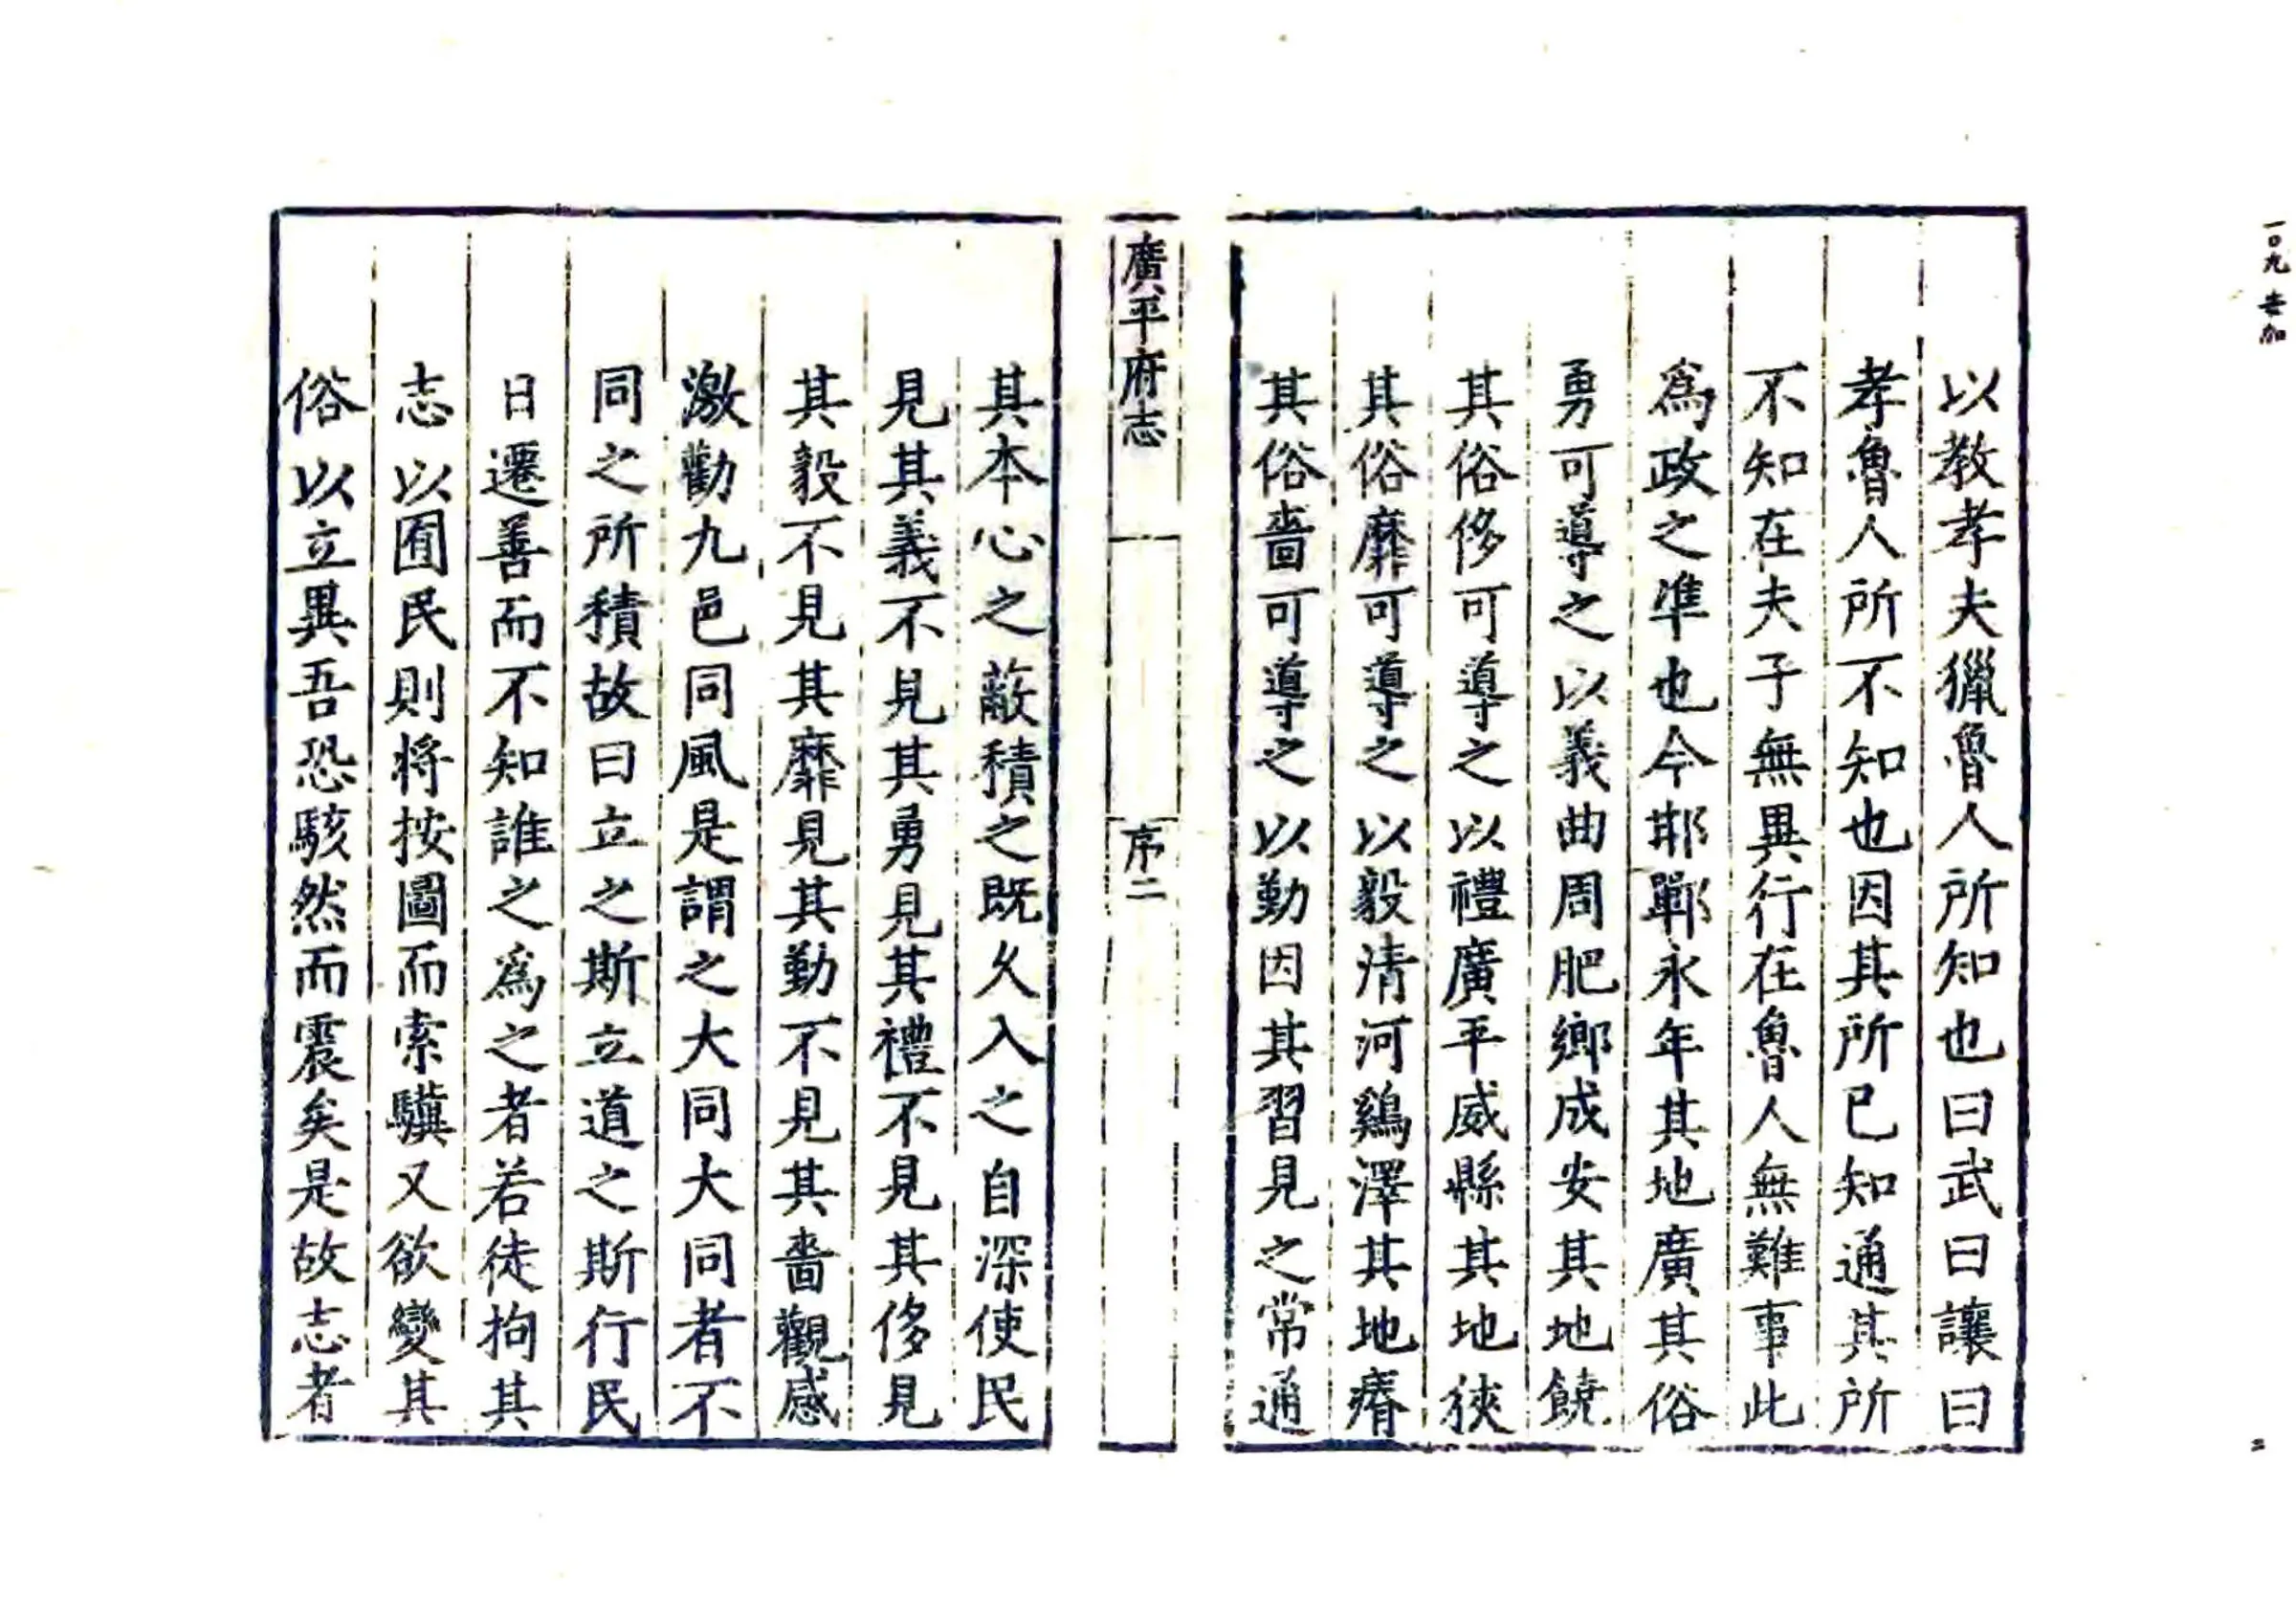 以教孝夫獵魯人所知也曰武曰讓曰
孝魯人所不知也因其所已知通其所
不知在夫子無異行在魯人無難事此
爲政之準也今邯鄲永年其地廣其俗
勇可導之以義曲周肥鄉成安其地饒
其俗侈可導之以禮廣平威縣其地狹
其俗靡可導之以毅清河鷄澤其地瘠
其俗嗇可導之以勤因其習見之常通
廣平府志
序二
其本心之蔽積之既久入之自深使民
見其義不見其勇見其禮不見其侈見
其毅不見其靡見其勤不見其嗇觀感
激勸九邑同風是謂之大同大同者不
同之所積故曰立之斯立道之斯行民
日遷善而不知誰之爲之者若徒拘其
志以囿民則将按圖而索驥又欲變其
俗以立異吾恐駭然而震矣是故志者
一〇九
二